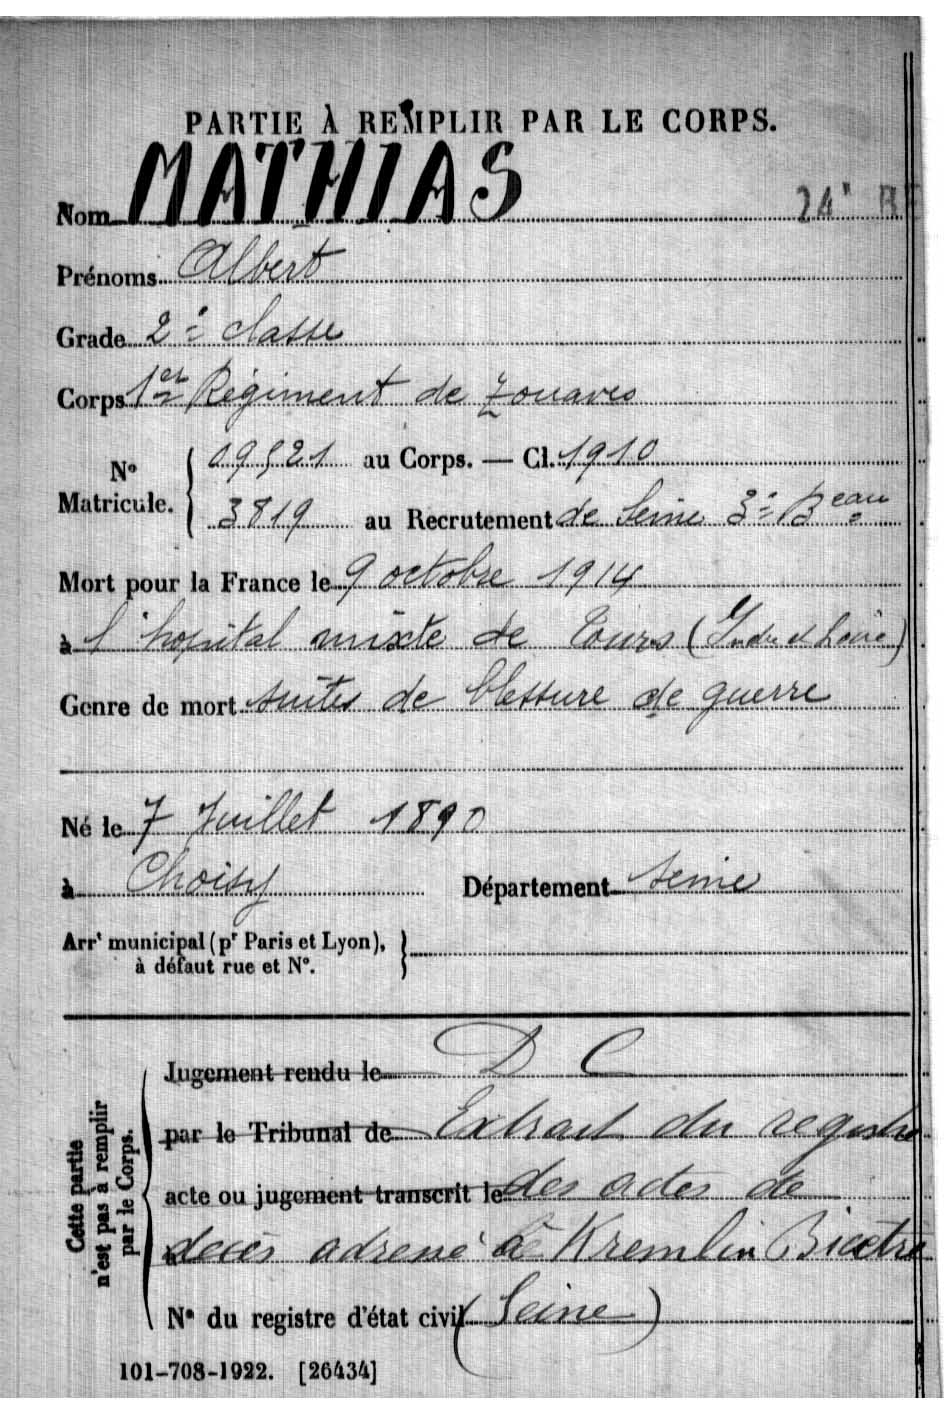 PARTIE À REMPLIR PAR LE CORPS.
Nom MATHIAS 24e RE
Prénoms Albert
Grade 2e classe
Corps 1er Régiment de Zouaves
No Matricule. 19521 au Corps. — Cl. 1910
3819 au Recrutement de Seine 3e Beau
Mort pour la France le 9 octobre 1914
à l'hopital mixte de Tours (Indre et Loire)
Genre de mort suites de blessure de guerre
Né le 7 Juillet 1890
à Choisy Département Seine
Arrt municipal (pr Paris et Lyon),
à défaut rue et No.
Cette partie
n'est pas à remplir
par le Corps.
Jugement rendu le D C
par le Tribunal de Extrait du registre
acte ou jugement transcrit le des actes de
décès adressé à Kremlin Bicètre
No du registre d'état civil (Seine)
101-708-1922. [26434]